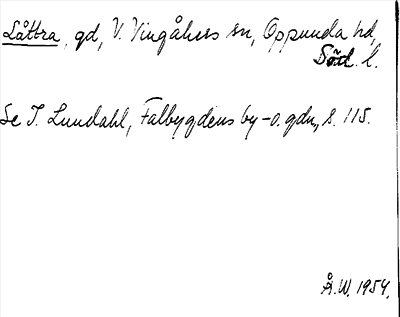 Låttra, gd, V. Vingåkers sn, Oppunda hd,
Söd. l.
Se I. Lundahl, Falbygdens by-o. gdn, s. 115.
Å.W. 1954.